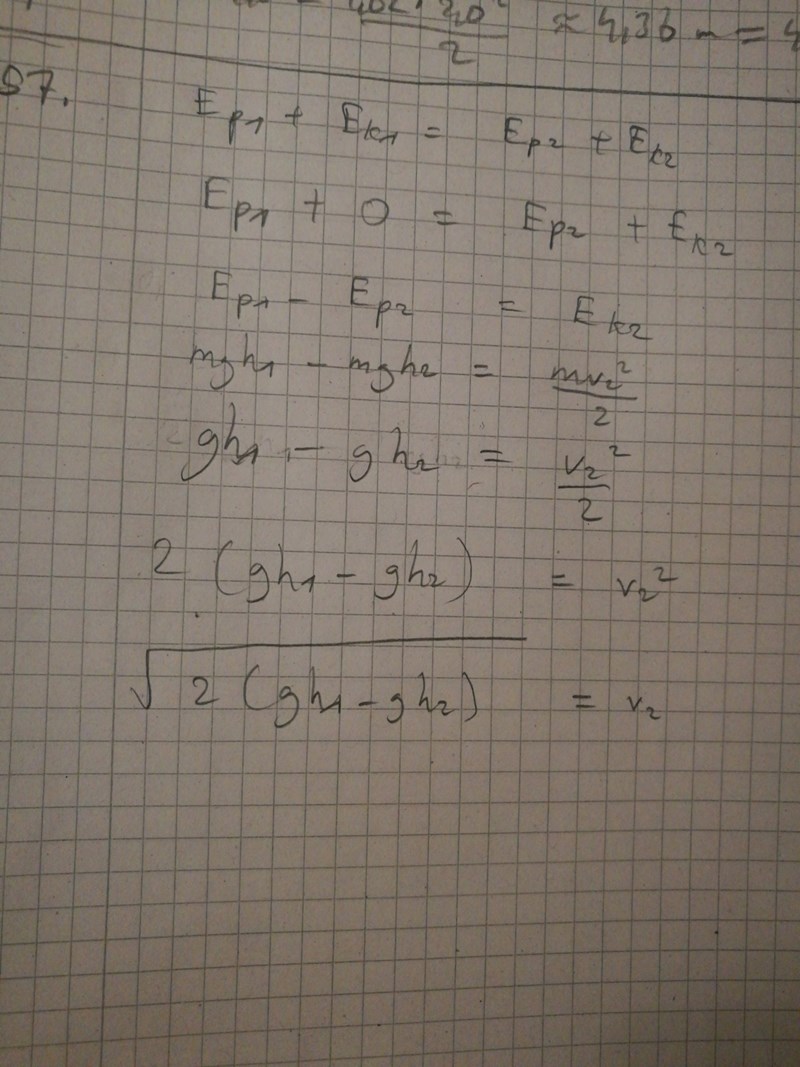 2
≈ 4,36 m = 4
57.
E_p1 + E_k1 = E_p2 + E_k2
E_p1 + 0 = E_p2 + E_k2
E_p1 - E_p2 = E_k2
mgh₁ - mgh₂ = mv₂²/2
gh₁ - gh₂ = v₂²/2
2 (gh₁ - gh₂) = v₂²
√2 (gh₁ - gh₂) = v₂